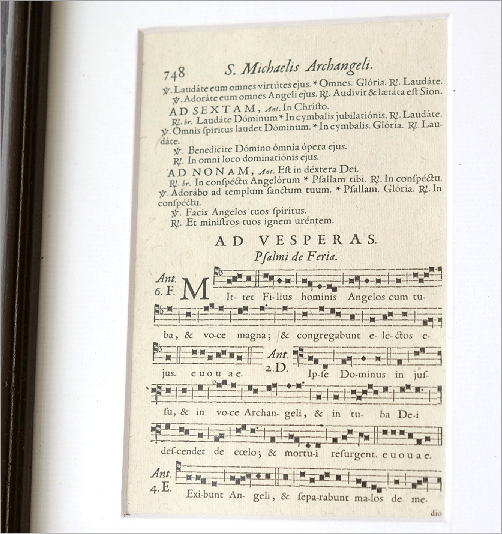 748 S. Michaelis Archangeli.
℣. Laudáte eum omnes virtútes ejus. * Omnes. Glória. ℟. Laudáte.
℣. Adoráte eum omnes Angeli ejus. ℟. Audivit & lætáta est Sion.
AD SEXTAM, Ant. In Christo.
℟. br. Laudáte Dóminum * In cymbalis jubilatiónis. ℟. Laudate.
℣. Omnis spiritus laudet Dóminum. * In cymbalis. Glória. ℟. Lau-
dáte.
℣. Benedícite Dómino ómnia ópera ejus.
℟. In omni loco dominatiónis ejus.
AD NONAM, Ant. Est in déxtera Dei.
℟. br. In conspéctu Angelórum * Psallam tibi. ℟. In conspéctu.
℣. Adorábo ad templum sanctum tuum. * Psallam. Glória. ℟. In
conspéctu.
℣. Facis Angelos tuos spiritus.
℟. Et ministros tuos ignem uréntem.
AD VESPERAS.
Psalmi de Feria.
Ant.
6. F. MIt- tet Fi-lius hominis Angelos cum tu-
ba, & vo-ce magna; & congregabunt e- le-ctos e-
jus. e u o u a e. Ant. 2. D. Ip-se Do-minus in jus-
su, & in vo-ce Archan- geli, & in tu- ba De-i
descendet de cœlo; & mortu-i resurgent. e u o u a e.
Ant.
4. E. Exi-bunt An- geli, & sepa-rabunt ma-los de me-
dio